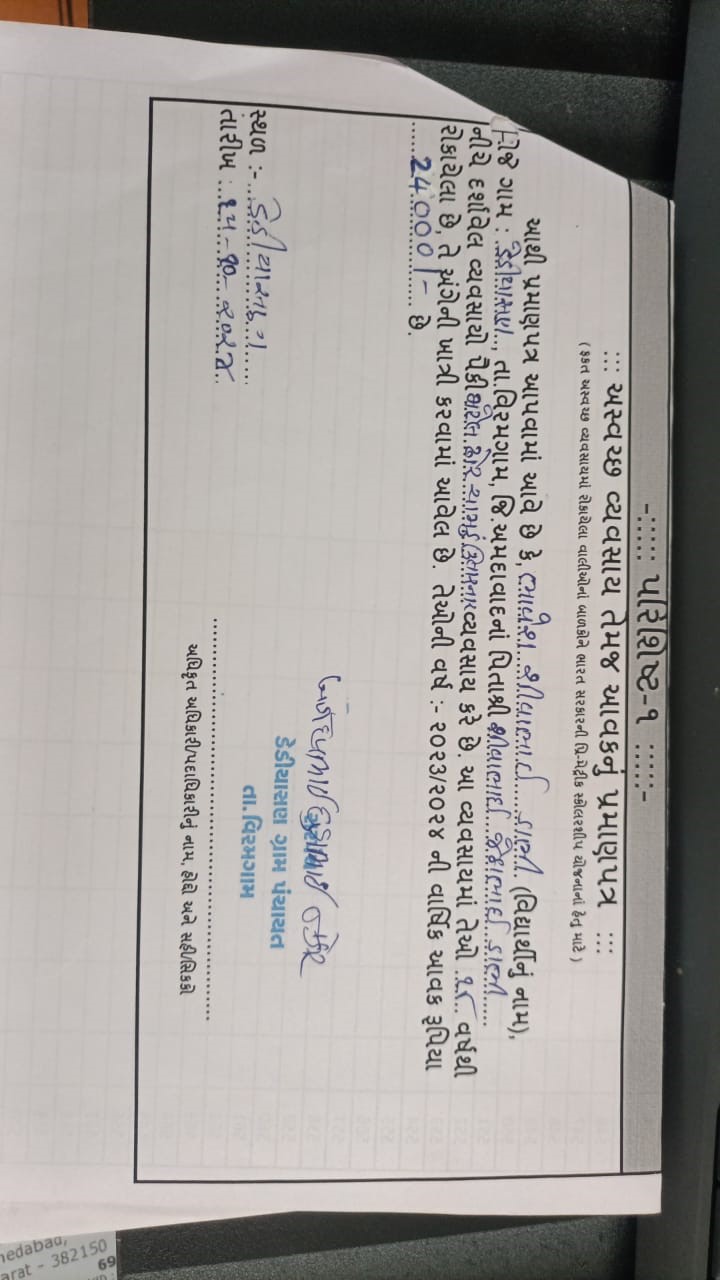 -::::: પરિશિષ્ટ-૧ :::::-
::: અસ્વચ્છ વ્યવસાય તેમજ આવકનું પ્રમાણપત્ર :::
( ફક્ત અસ્વચ્છ વ્યવસાયમાં રોકાયેલા વાલીઓનાં બાળકોને ભારત સરકારની પ્રિ-મેટ્રીક સ્કોલરશીપ યોજનાનાં હેતુ માટે )
આથી પ્રમાણપત્ર આપવામાં આવે છે કે, ભાવેશ જીવાભાઈ (વિદ્યાર્થીનું નામ),
ગામ : તા.વિરમગામ, જિ.અમદાવાદનાં પિતાશ્રી જીવાભાઈ
નીચે દર્શાવેલ વ્યવસાયો પૈકી મરેલ ઢોર વ્યવસાય કરે છે. આ વ્યવસાયમાં તેઓ વર્ષથી
રોકાયેલા છે, તે અંગેની ખાત્રી કરવામાં આવેલ છે. તેઓની વર્ષ : ૨૦૨૩/૨૦૨૪ ની વાર્ષિક આવક રૂપિયા
24000/- છે.
તા.વિરમગામ
ગ્રામ પંચાયત
સ્થળ :-
તારીખ :
અધિકૃત અધિકારી/પદાધિકારીનું નામ, હોદ્દો અને સહી/સિક્કો
382150
69